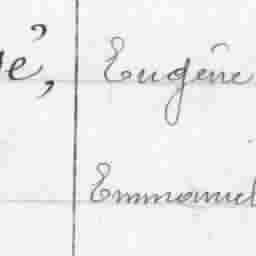 é, Eugène
Emmanuel